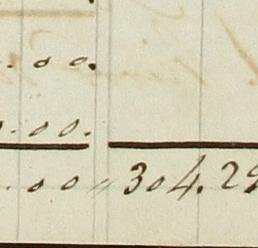 .00.
.00.
.00 〃 304.29